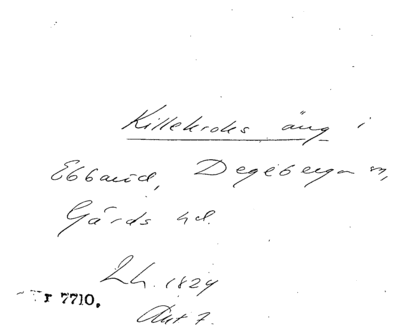 Killekroks äng i
Ebbarid, Degeberga sn,
Gärds hd.
Lh. 1829
Akt 7.
Nr 7710.